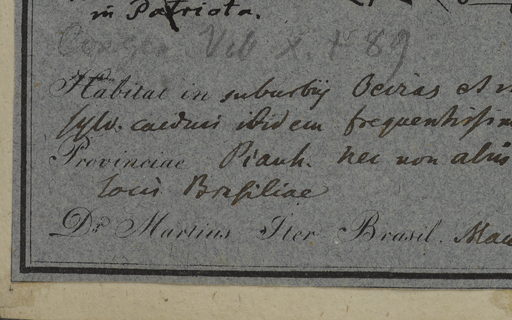 in Patriota.
Habitat in suburbiis Oeiras et
sylv. caeduis ibidem frequentissim
Provinciae Piauh. nec non aliis
locis Brasiliae
Dr. Martius Iter Brasil.